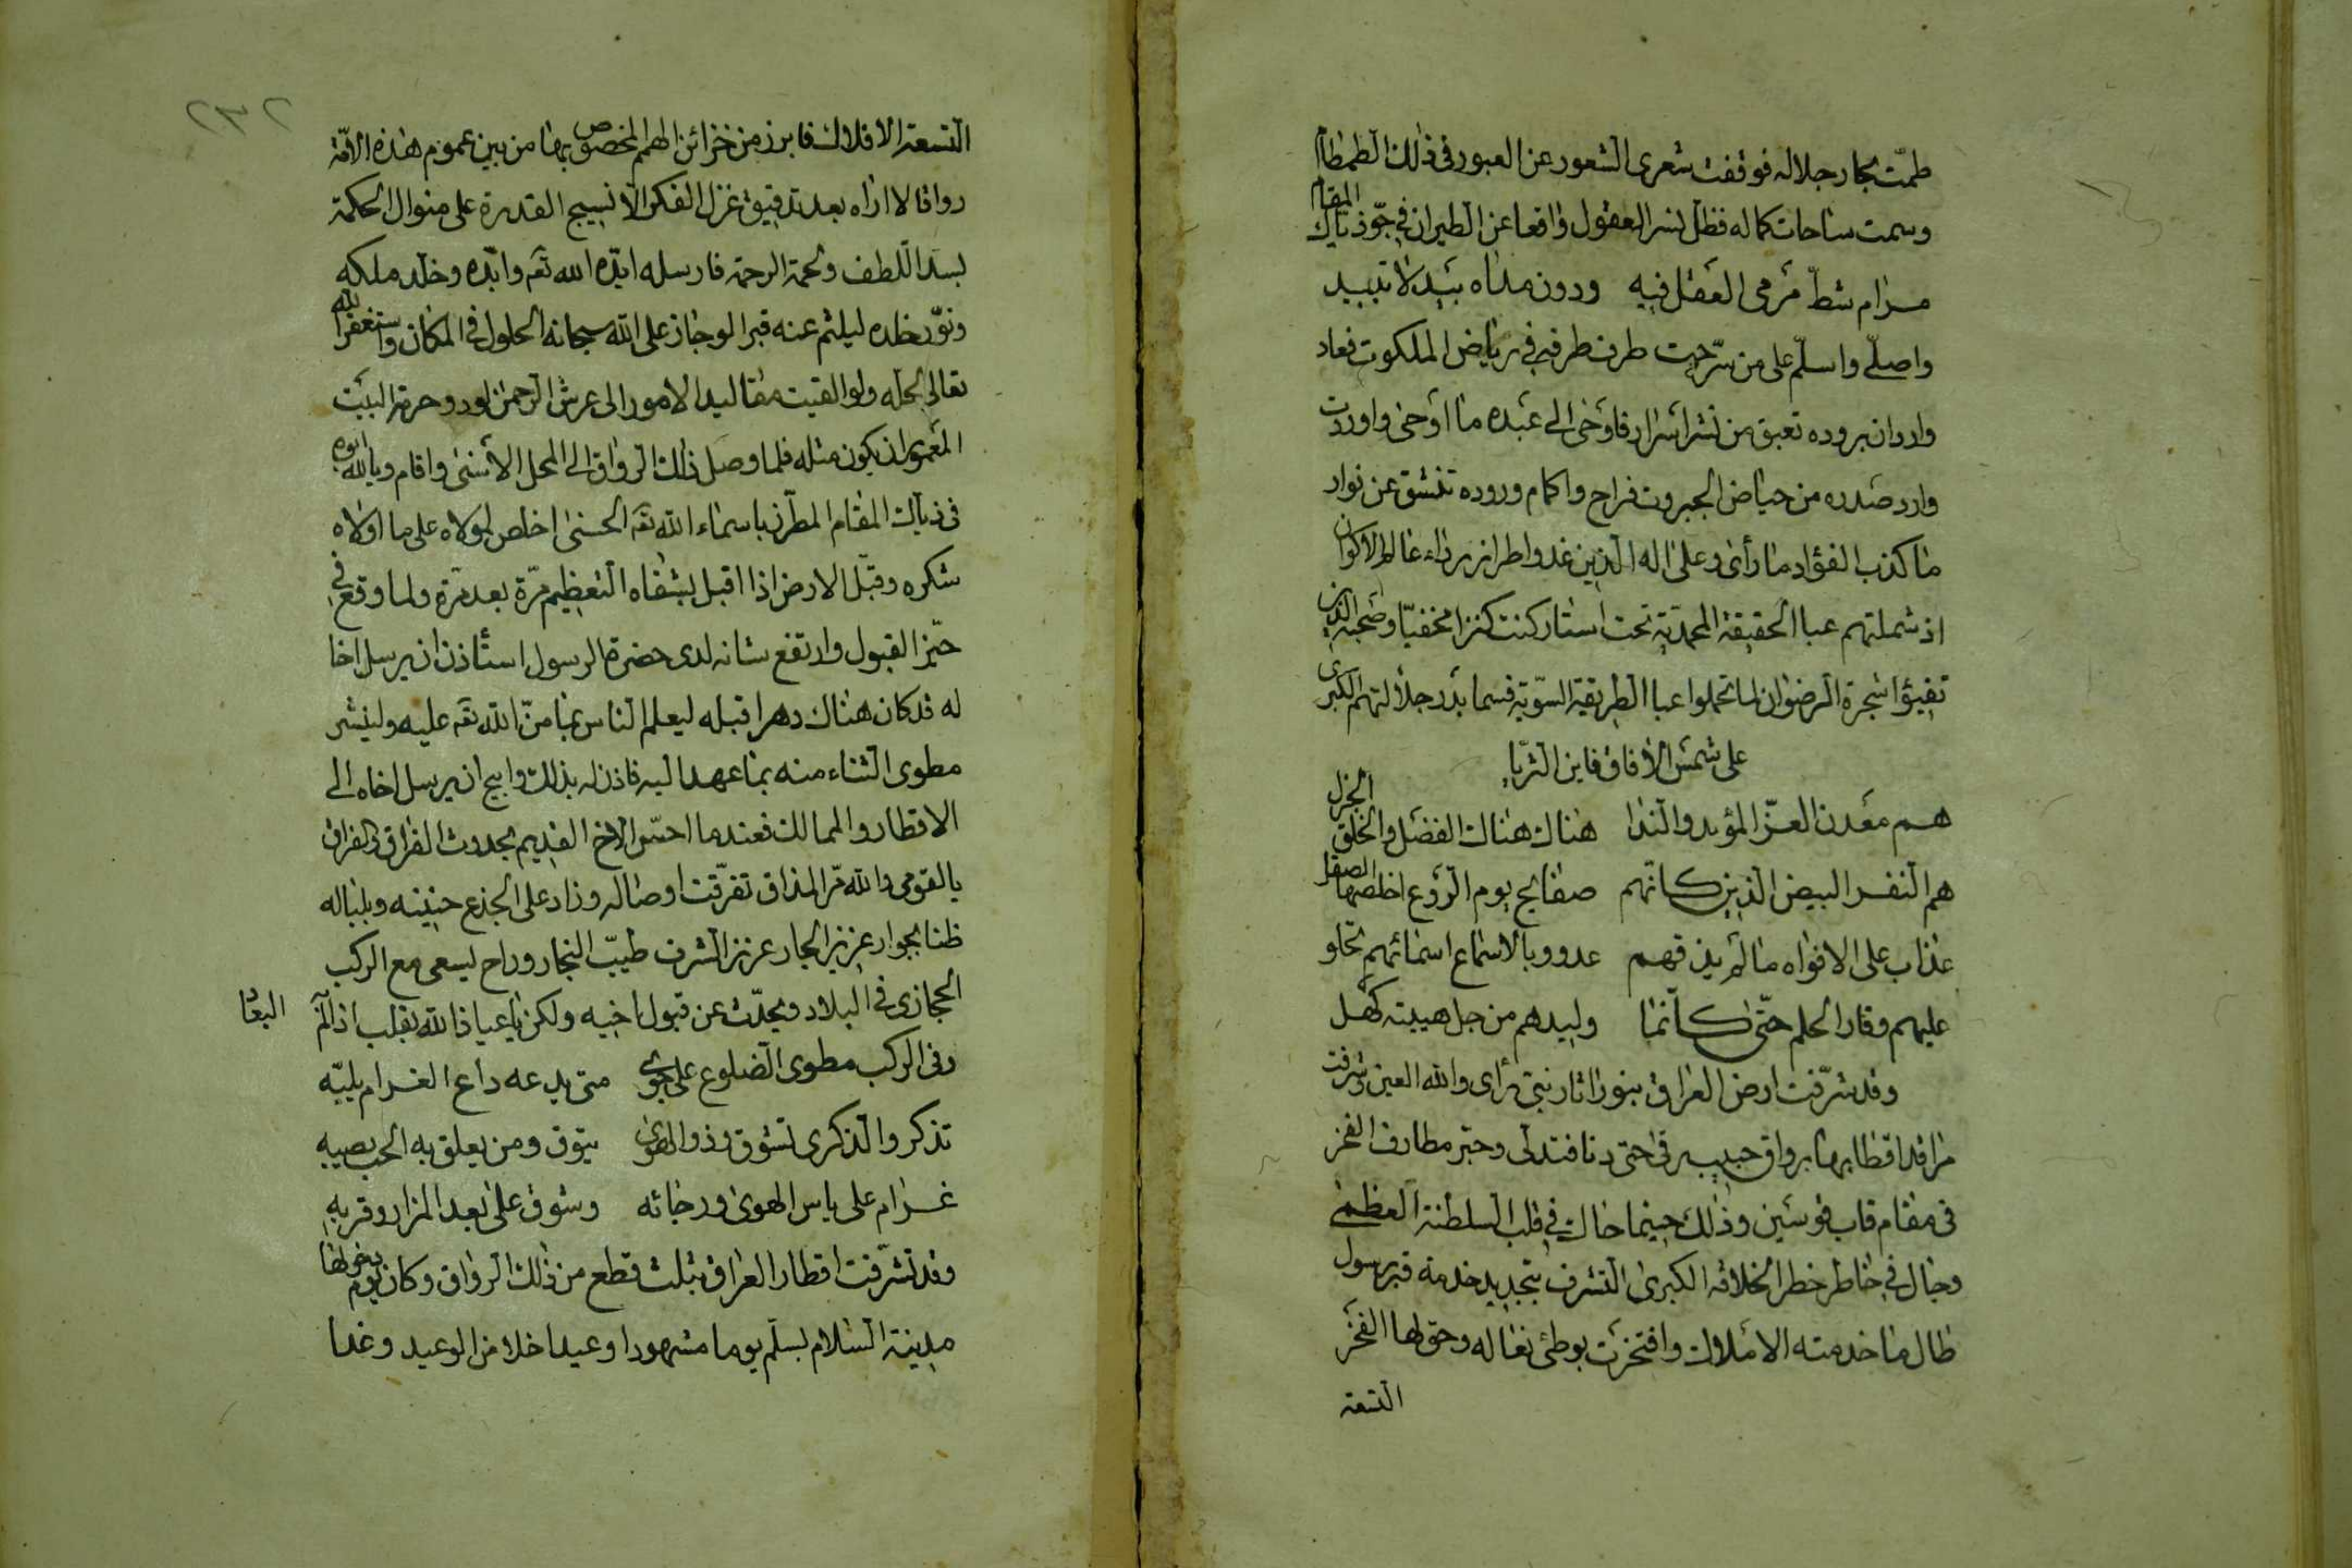 طمّت بحار جلاله فوقفت شعرى الشعور عن العبور في ذلك الطمطام
وسمت ساحات كماله فظل نسر العقول واقعا عن الطيران في جوّ ذياك المقام
مرام شطّ مرمى العقل فيه ودون مداه بيد لا تبيد
واصلّى واسلّم على من سرّحت طرف طرفه في رياض الملكوت فعاد
واردان بروده تعبق من نشر اسرار فاوحى الى عبده ما اوحى واوردت
وارد صدره من حياض الجبروت فراح واكمام وروده تنشق عن نوار
ما كذب الفؤاد ما رأى وعلى اله الذين غدوا طراز رداء عالم الاكوان
اذ شملتهم عبا الحقيقة المحمدية تحت استار كنت كنزا مخفيّا وصحبه الذين
تفيؤا شجرة الرضوان لما تحملوا عبا الطريقة السوّية فسما بدر جلالتهم الكبرى
على شمس الأفاق فاين الثريّا
هم معدن العزّ المؤبد والندا هناك هناك الفضل والخلق الجزل
هم النفر البيض الذين كانهم صفايح يوم الروع اخلصها الصقل
عذاب على الافواه ما لم يذقهم عدو وبالاسماع اسمائهم تحلو
عليهم وقار الحلم حتّى كانما وليدهم من جل هيبته كهل
وقد شرّفت ارض العراق بنور اثار نبى رأى والله العين وشرفت
مراقد اقطابها برواق حبيب رقى حتى دنا فتدلى وحبّر مطارف الفخر
في مقام قاب قوسين وذلك حينما حاك في قلب السلطنة العظمى
وجال في خاطر خطر الخلافة الكبرى التشرف بتجديد خدمة قبر رسول
طال ما خدمته الاملاك وافتخرت بوطئ نعاله وحق لها الفخر
التسعة
٢٣٢
التسعة الافلاك فابرز من خزائن الهمم المخصوص بها من بين عموم هذه الامّة
رواقا لا اراه بعد تدقيق غزل الفكر الا نسيج القدرة على منوال الحكمة
بسدا اللطف ولحمة الرحمة فارسله ايّده الله تع وابّده وخلّد ملكه
ونوّر خلده ليلثم عنه قبرا لو جاز على الله سبحانه الحلول في المكان واستغفر الله
تعالى لحلّه ولو القيت مقاليد الامور الى عرش الرحمن لود وحرمة البيت
المعمور ان يكون مثله فلما وصل ذلك الرواق الى المحل الأسنى واقام ويالله ابوه
في ذياك المقام المطرز باسماء الله تع الحسنى اخلص لمولاه على ما اولاه
شكره وقبّل الارض اذا اقبل بشفاه التعظيم مرّة بعد مرّة ولما وقع في
حيّز القبول وارتفع شانه لدى حضرة الرسول استأذن ان يرسل اخا
له قد كان هناك دهرا قبله ليعلم الناس بما منّ الله تع عليه ولينشر
مطوى الثناء منه بما عهد اليه فاذن له بذلك وابيح ان يرسل اخاه الى
الاقطار والممالك فعندما احسّ الاخ القديم بحدوث الفراق والفراق
يا لقومى والله مرّ المذاق تفرّقت اوصاله وزاد على الجذع حنينه وبلباله
ظنا بجوار عزيز الجار عزز الشرف طيّب النجار وراح ليسعى مع الركب
الحجازى في البلاد ويحدّث عن قبول اخيه ولكن يا عياذا لله بقلب اذا لم
وفى الركب مطوى الضلوع على جوى متى يدعه داع الغرام يلبّه
تذكر والذكرى تشوق وذو الهوى يتوق ومن يعلق به الحب يصبه
غرام على ياس الهوى ورجائه وشوق على بعد المزار وقربه
وقد تشرّفت اقطار العراق بثلث قطع من ذلك الرواق وكان يوم دخولها
مدينة السلام بسلم يوما مشهودا وعيدا خلا من الوعيد وغدا